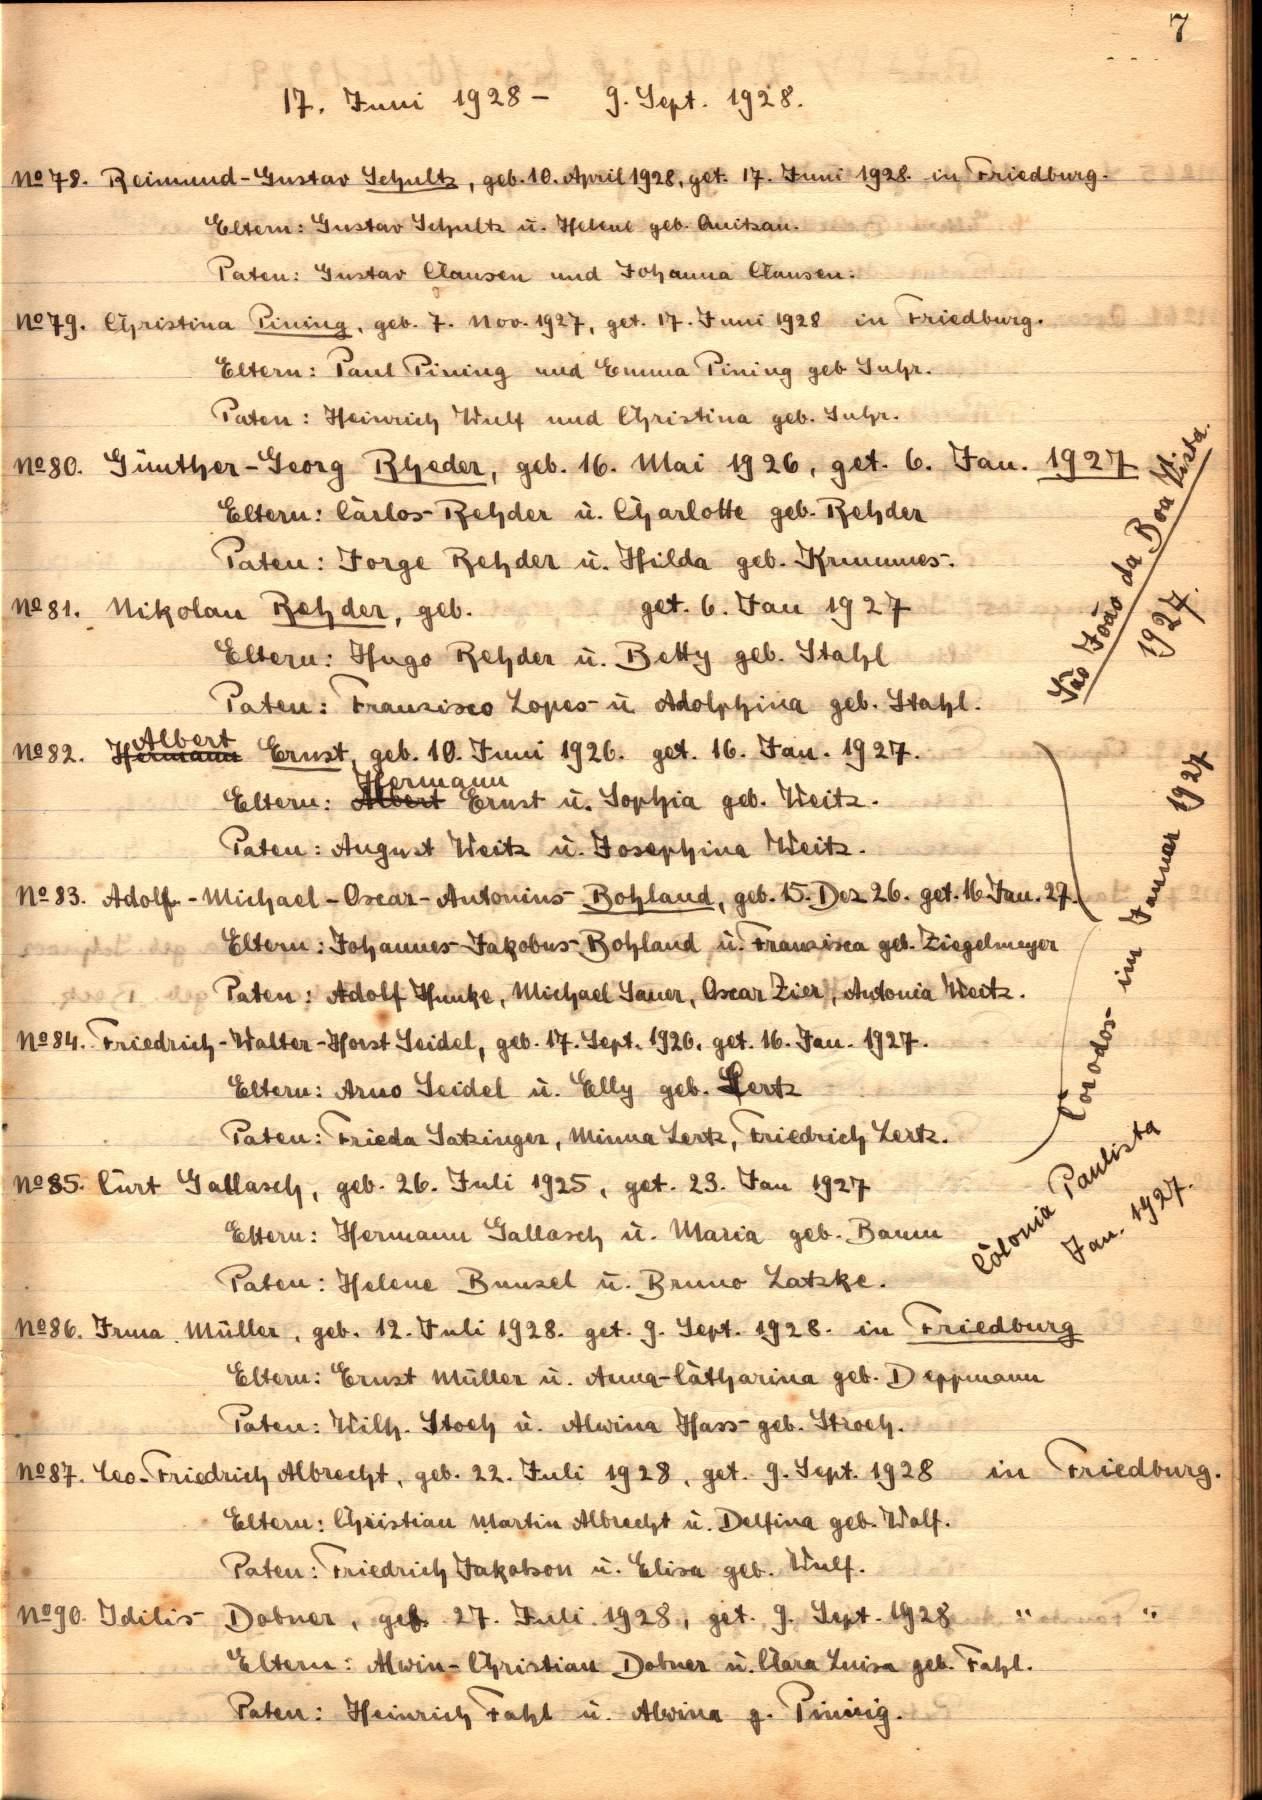 7
17. Juni 1928 – 9. Sept. 1928.
No 78. Reimund-Gustav Schultz, geb. 10. April 1928, get. 17. Juni 1928 in Friedburg.
Eltern: Gustav Schultz u. Helene geb. Quitzau.
Paten: Gustav Clausen und Johanna Clausen.
No 79. Christina Pining, geb. 7. Nov. 1927, get. 17. Juni 1928 in Friedburg.
Eltern: Paul Pining und Emma Pining geb Suhr.
Paten: Heinrich Wulf und Christina geb. Suhr.
No 80. Günther-Georg Rheder, geb. 16. Mai 1926, get. 6. Jan. 1927
Eltern: Carlos Rehder u. Charlotte geb. Rehder
Paten: Jorge Rehder u. Hilda geb. Krummes.
No 81. Nikolau Rehder, geb. get. 6. Jan 1927
Eltern: Hugo Rehder u. Betty geb. Stahl
Paten: Franzisco Lopes u Adolphina geb. Stahl.
São João da Boa Vista.
1927.
No 82. Hermann Albert Ernst, geb. 10. Juni 1926. get. 16. Jan. 1927.
Eltern: Albert Hermann Ernst u. Sophia geb. Weitz.
Paten: August Weitz u. Josephina Weitz.
No 83. Adolf-Michael-Oscar-Antonius Bohland, geb. 15. Dez 26. get. 16 Jan. 27.
Eltern: Johannes-Jakobus Bohland u. Franzisca geb. Ziegelmeyer
Paten: Adolf Hunke, Michael Sauer, Oscar Zier, Antonia Weitz.
No 84. Friedrich-Walter-Horst Seidel, geb. 17. Sept. 1926. get. 16. Jan. 1927.
Eltern: Arno Seidel u. Elly geb. Lertz
Paten: Frieda Satzinger, Minna Lertz, Friedrich Lertz.
Corodos im Januar 1927
No 85. Curt Gallasch, geb. 26. Juli 1925, get. 23. Jan 1927
Eltern: Hermann Gallasch u. Maria geb. Baum
Paten: Helene Bunzel u. Bruno Latzke.
Colonia Paulista
Jan. 1927.
No 86. Irma Müller, geb. 12. Juli 1928. get. 9. Sept. 1928. in Friedburg
Eltern: Ernst Müller u. Anna-Catharina geb. Deppmann
Paten: Wilh. Stoeh u. Alwina Hass geb. Stroeh.
No 87. Leo-Friedrich Albrecht, geb. 22. Juli 1928, get. 9. Sept. 1928 in Friedburg.
Eltern: Christian Martin Albrecht u. Delfina geb. Wolf.
Paten: Friedrich Jakobson u. Elisa geb. Wulf.
No 90. Idilis Dobner, geb. 27. Juli 1928, get. 9. Sept. 1928 " "
Eltern: Alwin-Christian Dobner u. Clara Luisa geb. Fahl.
Paten: Heinrich Fahl u. Alwina g. Pining.